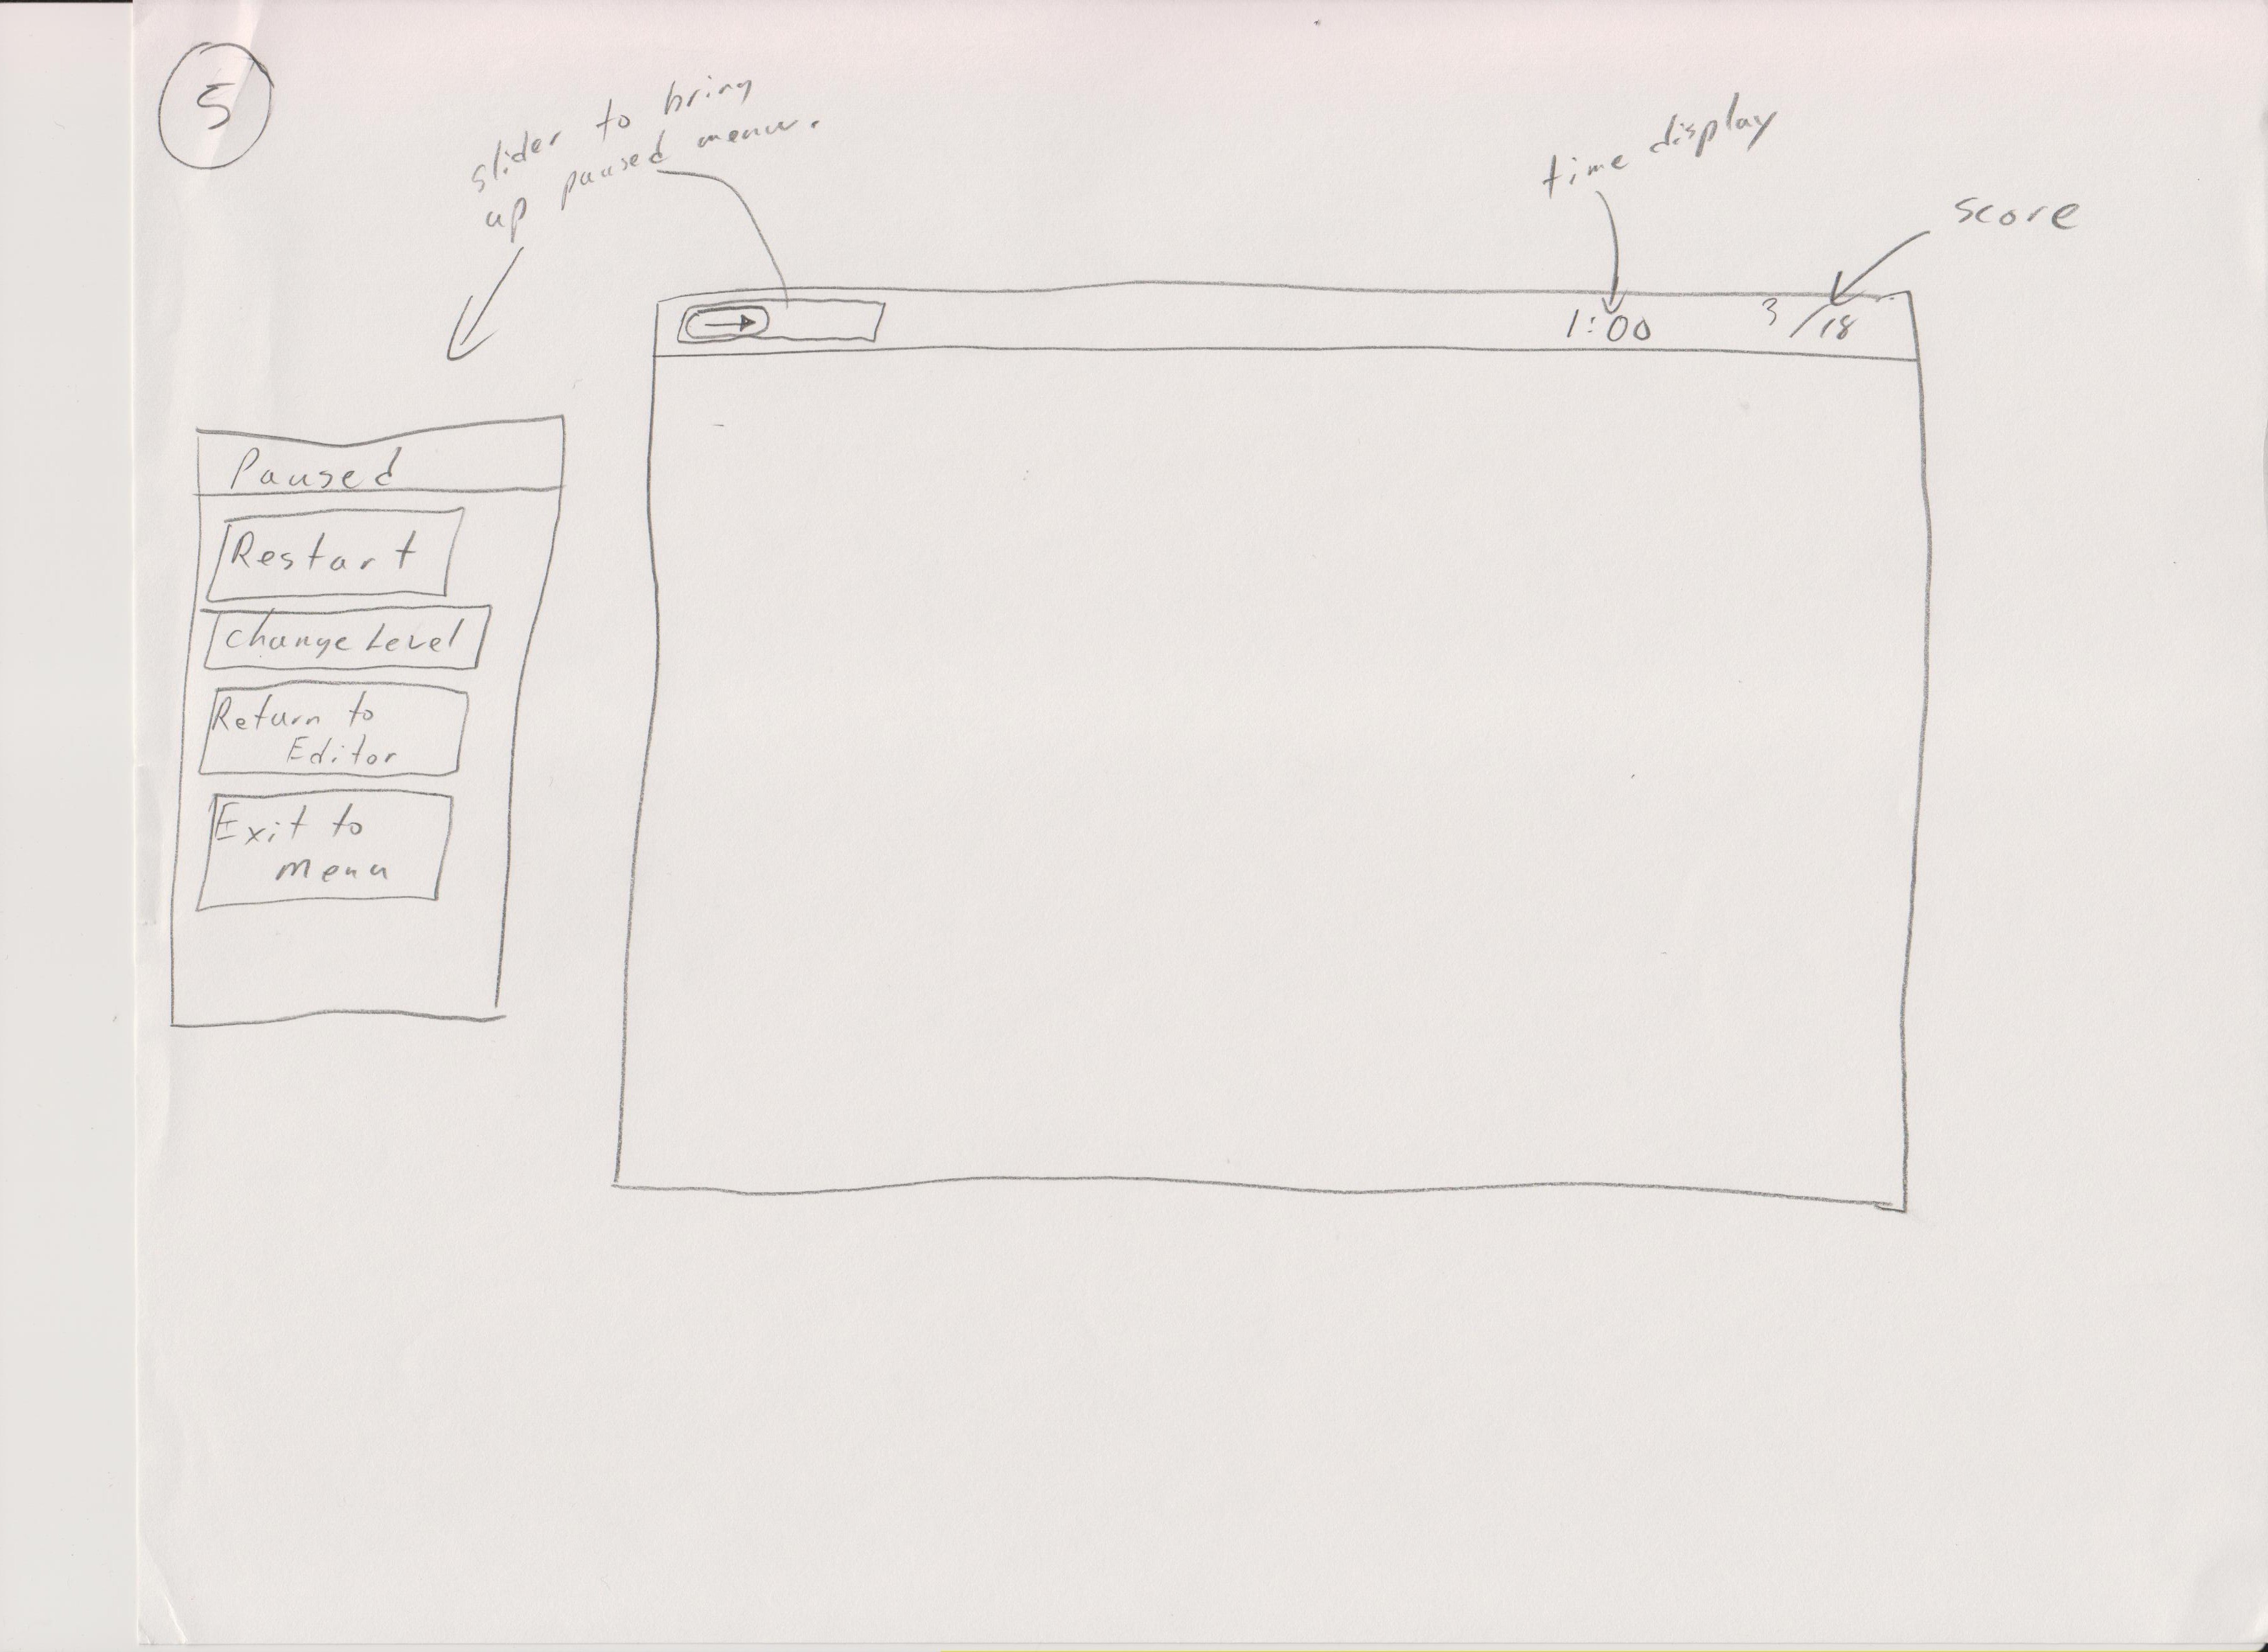 5
slider to bring
up paused menu.
time display
score
1:00
3/18
Paused
Restart
Change Level
Return to
Editor
Exit to
menu